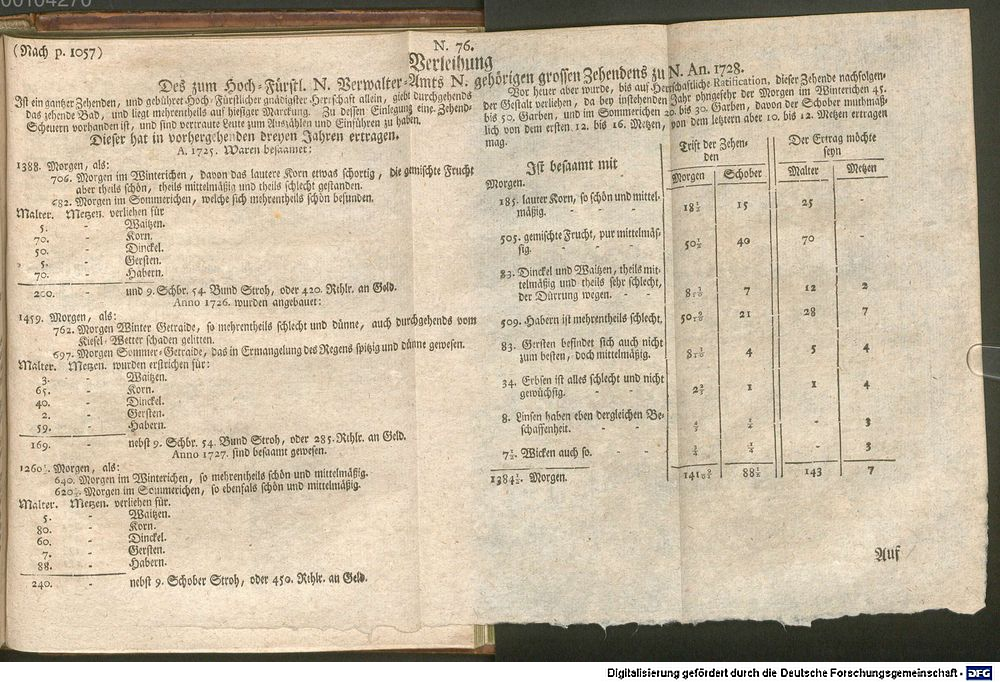 00104276
(Nach p. 1057)
N. 76.
Verleihung
Des zum Hoch-Fürstl. N. Verwalter-Amts N. gehörigen grossen Zehendens zu N. An. 1728.
Ist ein gantzer Zehenden, und gebühret Hoch-Fürstlicher gnädigster Herrschaft allein, giebt durchgehends
das zehende Bad, und liegt mehrentheils auf hiesiger Marckung. Zu dessen Einlegung eine Zehend-
Scheuern vorhanden ist, und sind vertraute Leute zum Auszählen und Einführen zu haben.
Dieser hat in vorhergehenden dreyen Jahren ertragen.
A. 1725. Waren besaamet:
1388. Morgen, als:
706. Morgen im Winterichen, davon das lautere Korn etwas schortig, die gemischte Frucht
aber theils schön, theils mittelmäßig und theils schlecht gestanden.
682. Morgen im Sommerichen, welche sich mehrentheils schön befunden.
Malter. Metzen. verliehen für
5. - Waitzen.
70. - Korn.
50. - Dinckel.
5. - Gersten.
70. - Habern.
200. - und 9. Schbr. 54. Bund Stroh, oder 420. Rthlr. an Geld.
Anno 1726. wurden angebauet:
1459. Morgen, als:
762. Morgen Winter Getraide, so mehrentheils schlecht und dünne, auch durchgehends vom
Kiesel-Wetter schaden gelitten.
697. Morgen Sommer-Getraide, das in Ermangelung des Regens spitzig und dünne gewesen.
Malter. Metzen. wurden erstrichen für:
3. - Waitzen.
65. - Korn.
40. - Dinckel.
2. - Gersten.
59. - Habern.
169. - nebst 9. Schbr. 54. Bund Stroh, oder 285. Rthlr. an Geld.
Anno 1727. sind besaamt gewesen.
1260½. Morgen, als:
640. Morgen im Winterichen, so mehrentheils schön und mittelmäßig.
620½. Morgen im Sommerichen, so ebenfals schön und mittelmäßig.
Malter. Metzen. verliehen für.
5. - Waitzen.
80. - Korn.
60. - Dinckel.
7. - Gersten.
88. - Habern.
240. - nebst 9. Schober Stroh, oder 450. Rthlr. an Geld.
Vor heuer aber wurde, bis auf Herrschaftliche Ratification, dieser Zehende nachfolgen-
der Gestalt verliehen, da bey instehenden Jahr ohngefehr der Morgen im Winterichen 45.
bis 50. Garben, und im Sommerichen 20. bis 30. Garben, davon der Schober muthmäß-
lich von dem ersten 12. bis 16. Metzen, von dem letztern aber 10. bis 12. Metzen ertragen
mag.
Ist besaamt mit
Trift der Zehen-
den
Der Ertrag möchte
seyn
Morgen. Morgen Schober Malter Metzen
185. lauter Korn, so schön und mittel-
mäßig. - - 18½ 15 25 -
505. gemischte Frucht, pur mittelmäs-
sig. - - - 50½ 40 70 -
83. Dinckel und Waitzen, theils mit-
telmäßig und theils sehr schlecht,
der Dürrung wegen. - - 8 3/10 7 12 2
509. Habern ist mehrentheils schlecht, 50 9/10 21 28 7
83. Gersten befindet sich auch nicht
zum besten, doch mittelmäßig. 8 3/10 4 5 4
34. Erbsen ist alles schlecht und nicht
gewüchsig. - - 2 1 1 4
8. Linsen haben eben dergleichen Be-
schaffenheit. - - - 3
7½. Wicken auch so. - - ¾ ¼ - 3
1384½. Morgen. 141 88½ 143 7
Auf
Digitalisierung gefördert durch die Deutsche Forschungsgemeinschaft - DFG